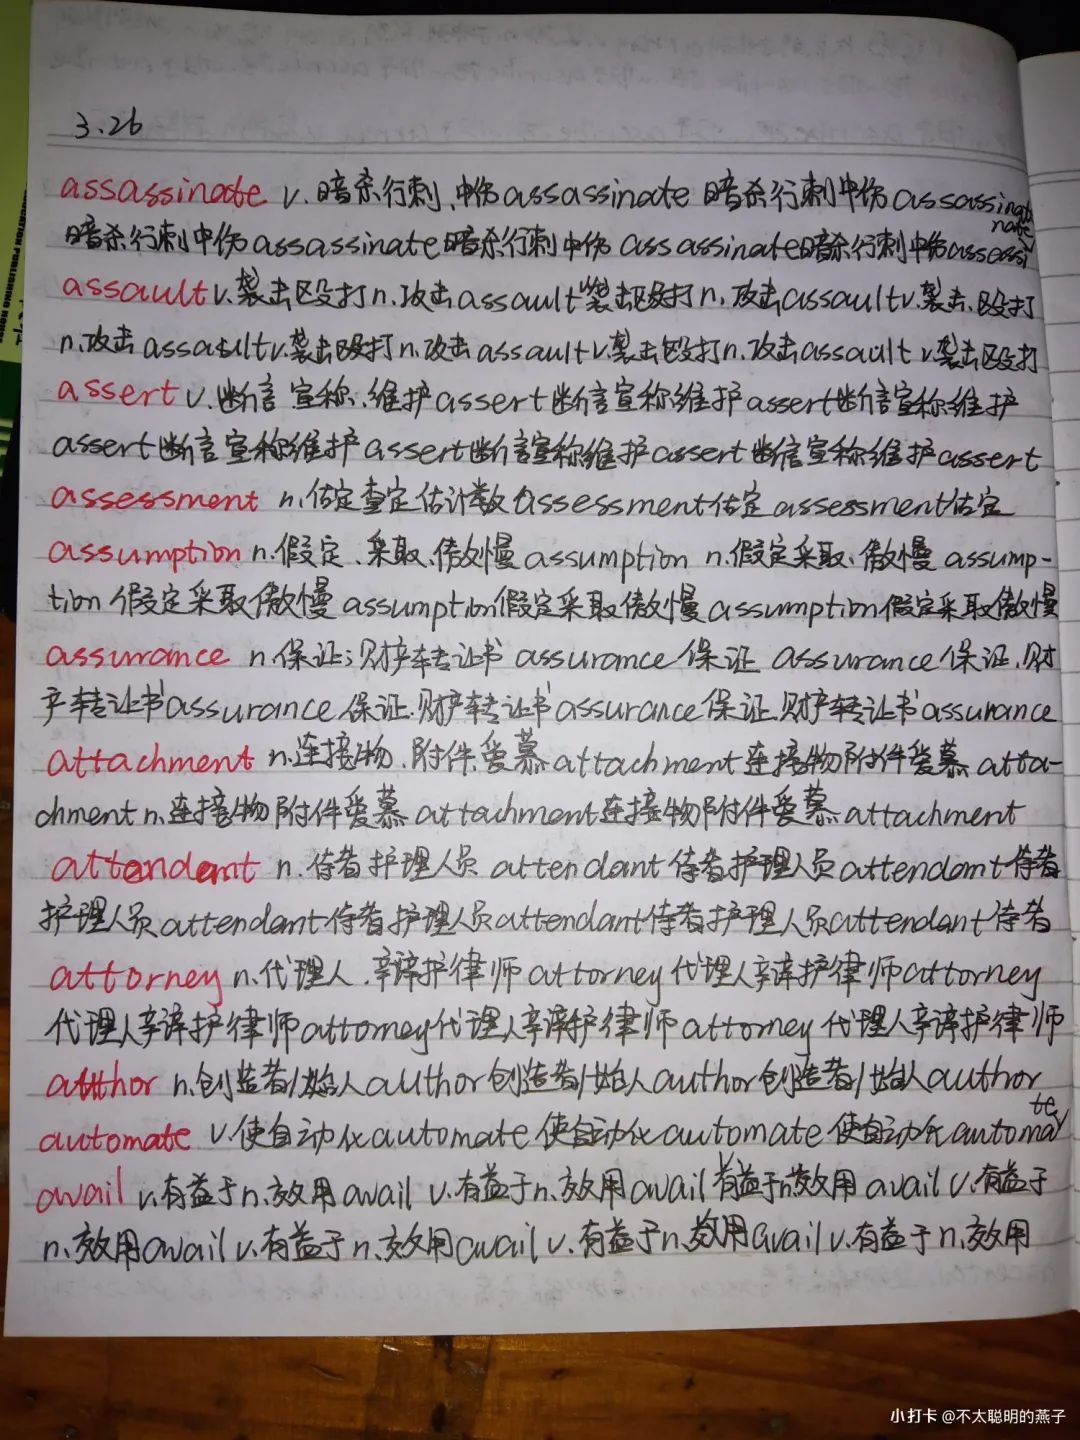 3.26
assassinate v.暗杀行刺,中伤assassinate 暗杀行刺中伤assassinate
暗杀行刺中伤assassinate暗杀行刺中伤 assassinate暗杀行刺中伤assassi
assault v.袭击殴打n.攻击assault袭击殴打n.攻击assault v.袭击.殴打
n.攻击 assault v.袭击殴打n.攻击 assault v.袭击殴打n.攻击assault. v.袭击殴打
assert v.断言 宣称.维护assert断言宣称维护 assert断言宣称维护
assert断言宣称维护 assert断言宣称维护assert断言宣称维护assert
assessment n.估定查定估计数assessment估定 assessment估定
assumption n.假定.采取.傲慢assumption n.假定采取.傲慢 assump-
tion 假定采取傲慢 assumption假定采取傲慢assumption假定采取傲慢
assurance n.保证;财产转让书 assurance保证 assurance保证.财
产转让书assurance保证.财产转让书assurance保证.财产转让书assurance
attachment n.连接物.附件爱慕attachment连接物附件爱慕atta-
chment n.连接物附件爱慕attachment连接物附件爱慕attachment
attendant n.侍者护理人员 attendant侍者护理人员attendant侍者
护理人员attendant侍者护理人员attendant侍者护理人员attendant侍者
attorney n.代理人.辩护律师attorney代理人辩护律师attorney
代理人辩护律师attorney代理人辩护律师attorney代理人辩护律师
author n.创造者/始人author创造者/始人author创造者/始人author
automate v.使自动化automate使自动化automate使自动化automate
avail v.有益于n.效用avail v.有益于n.效用avail有益于n.效用 avail v.有益于
n.效用avail v.有益于n.效用avail v.有益于n.效用avail v.有益于n.效用
CATION PUBLISHING HOUSE
小打卡@不太聪明的燕子